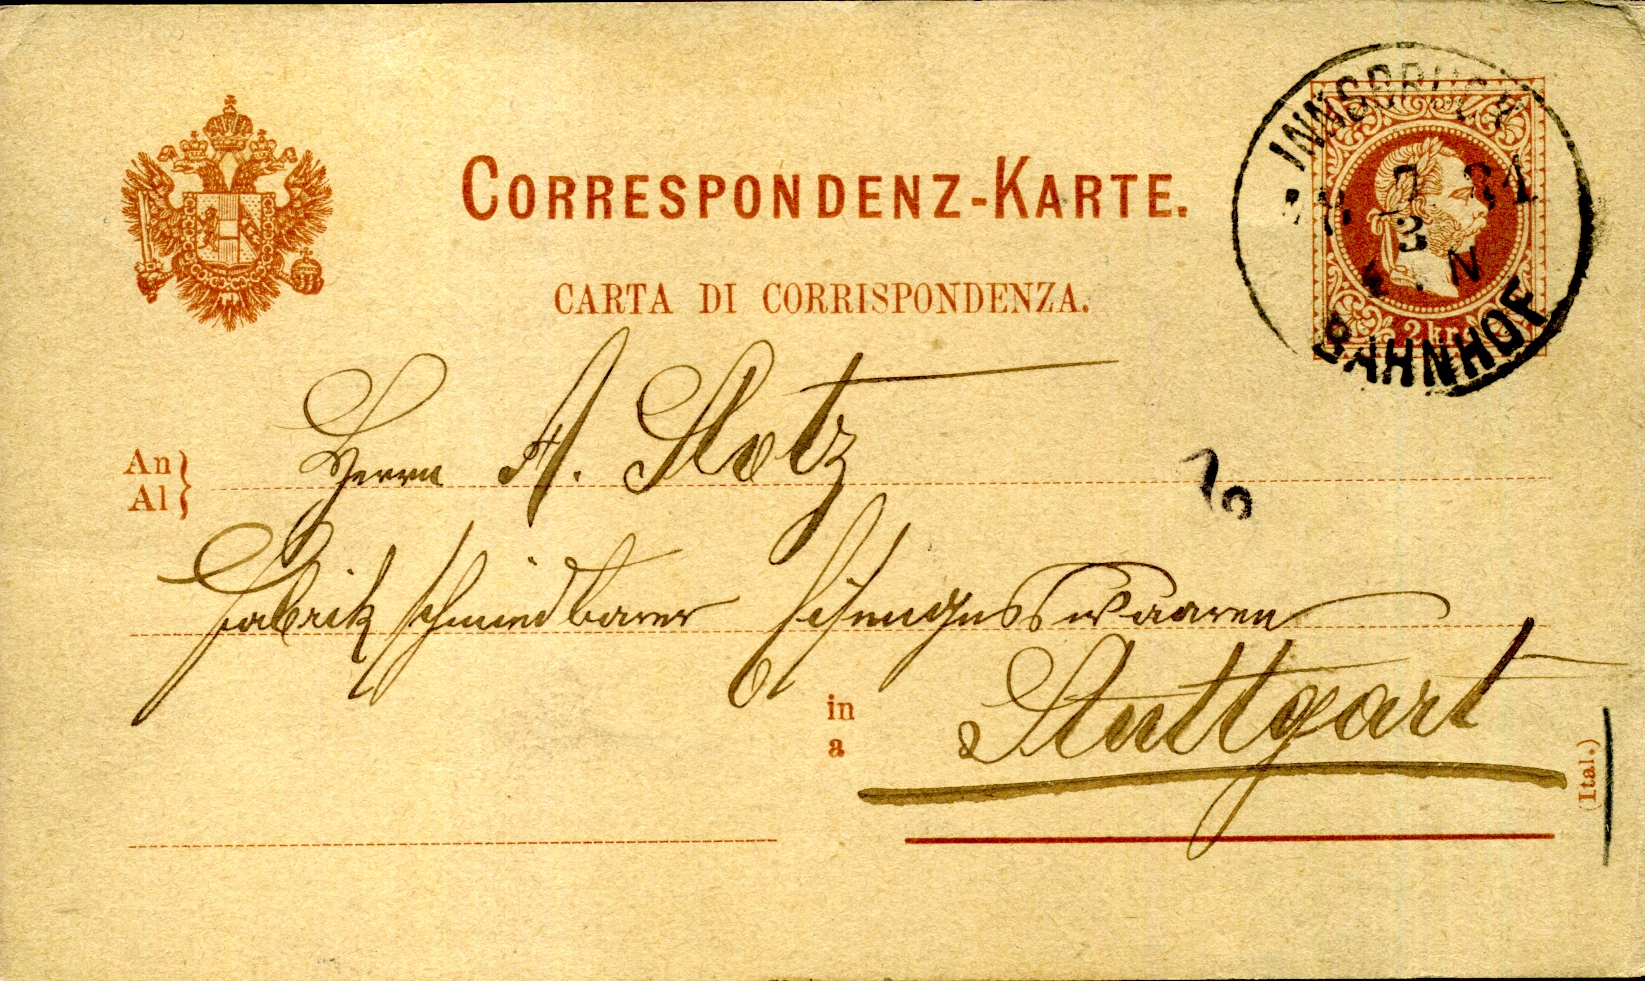 CORRESPONDENZ-KARTE.
CARTA DI CORRISPONDENZA.
INNSBRUCK
7 81
3
N
BAHNHOF
2 kr.
An
Al
Herrn A. Stotz
Fabrik schmiedbarer Eisengusswaaren
in
a
Stuttgart
(Ital.)